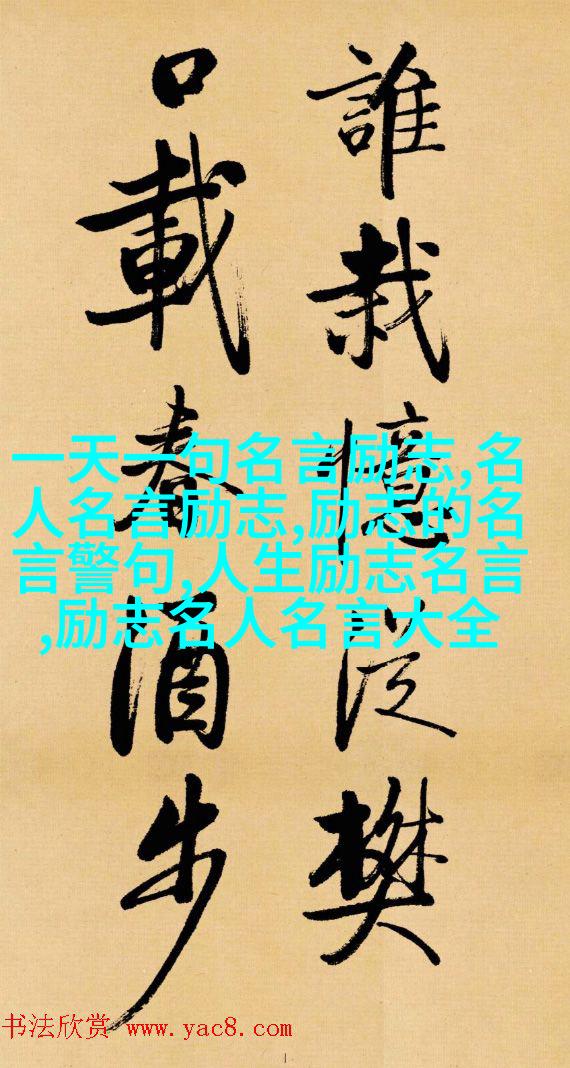 誰栽憶從樊
口載春酒步
一天一句名言励志,名
人名言励志,励志的名
言警句,人生励志名言
,励志名人名言大全
书法欣赏 www.yac8.com